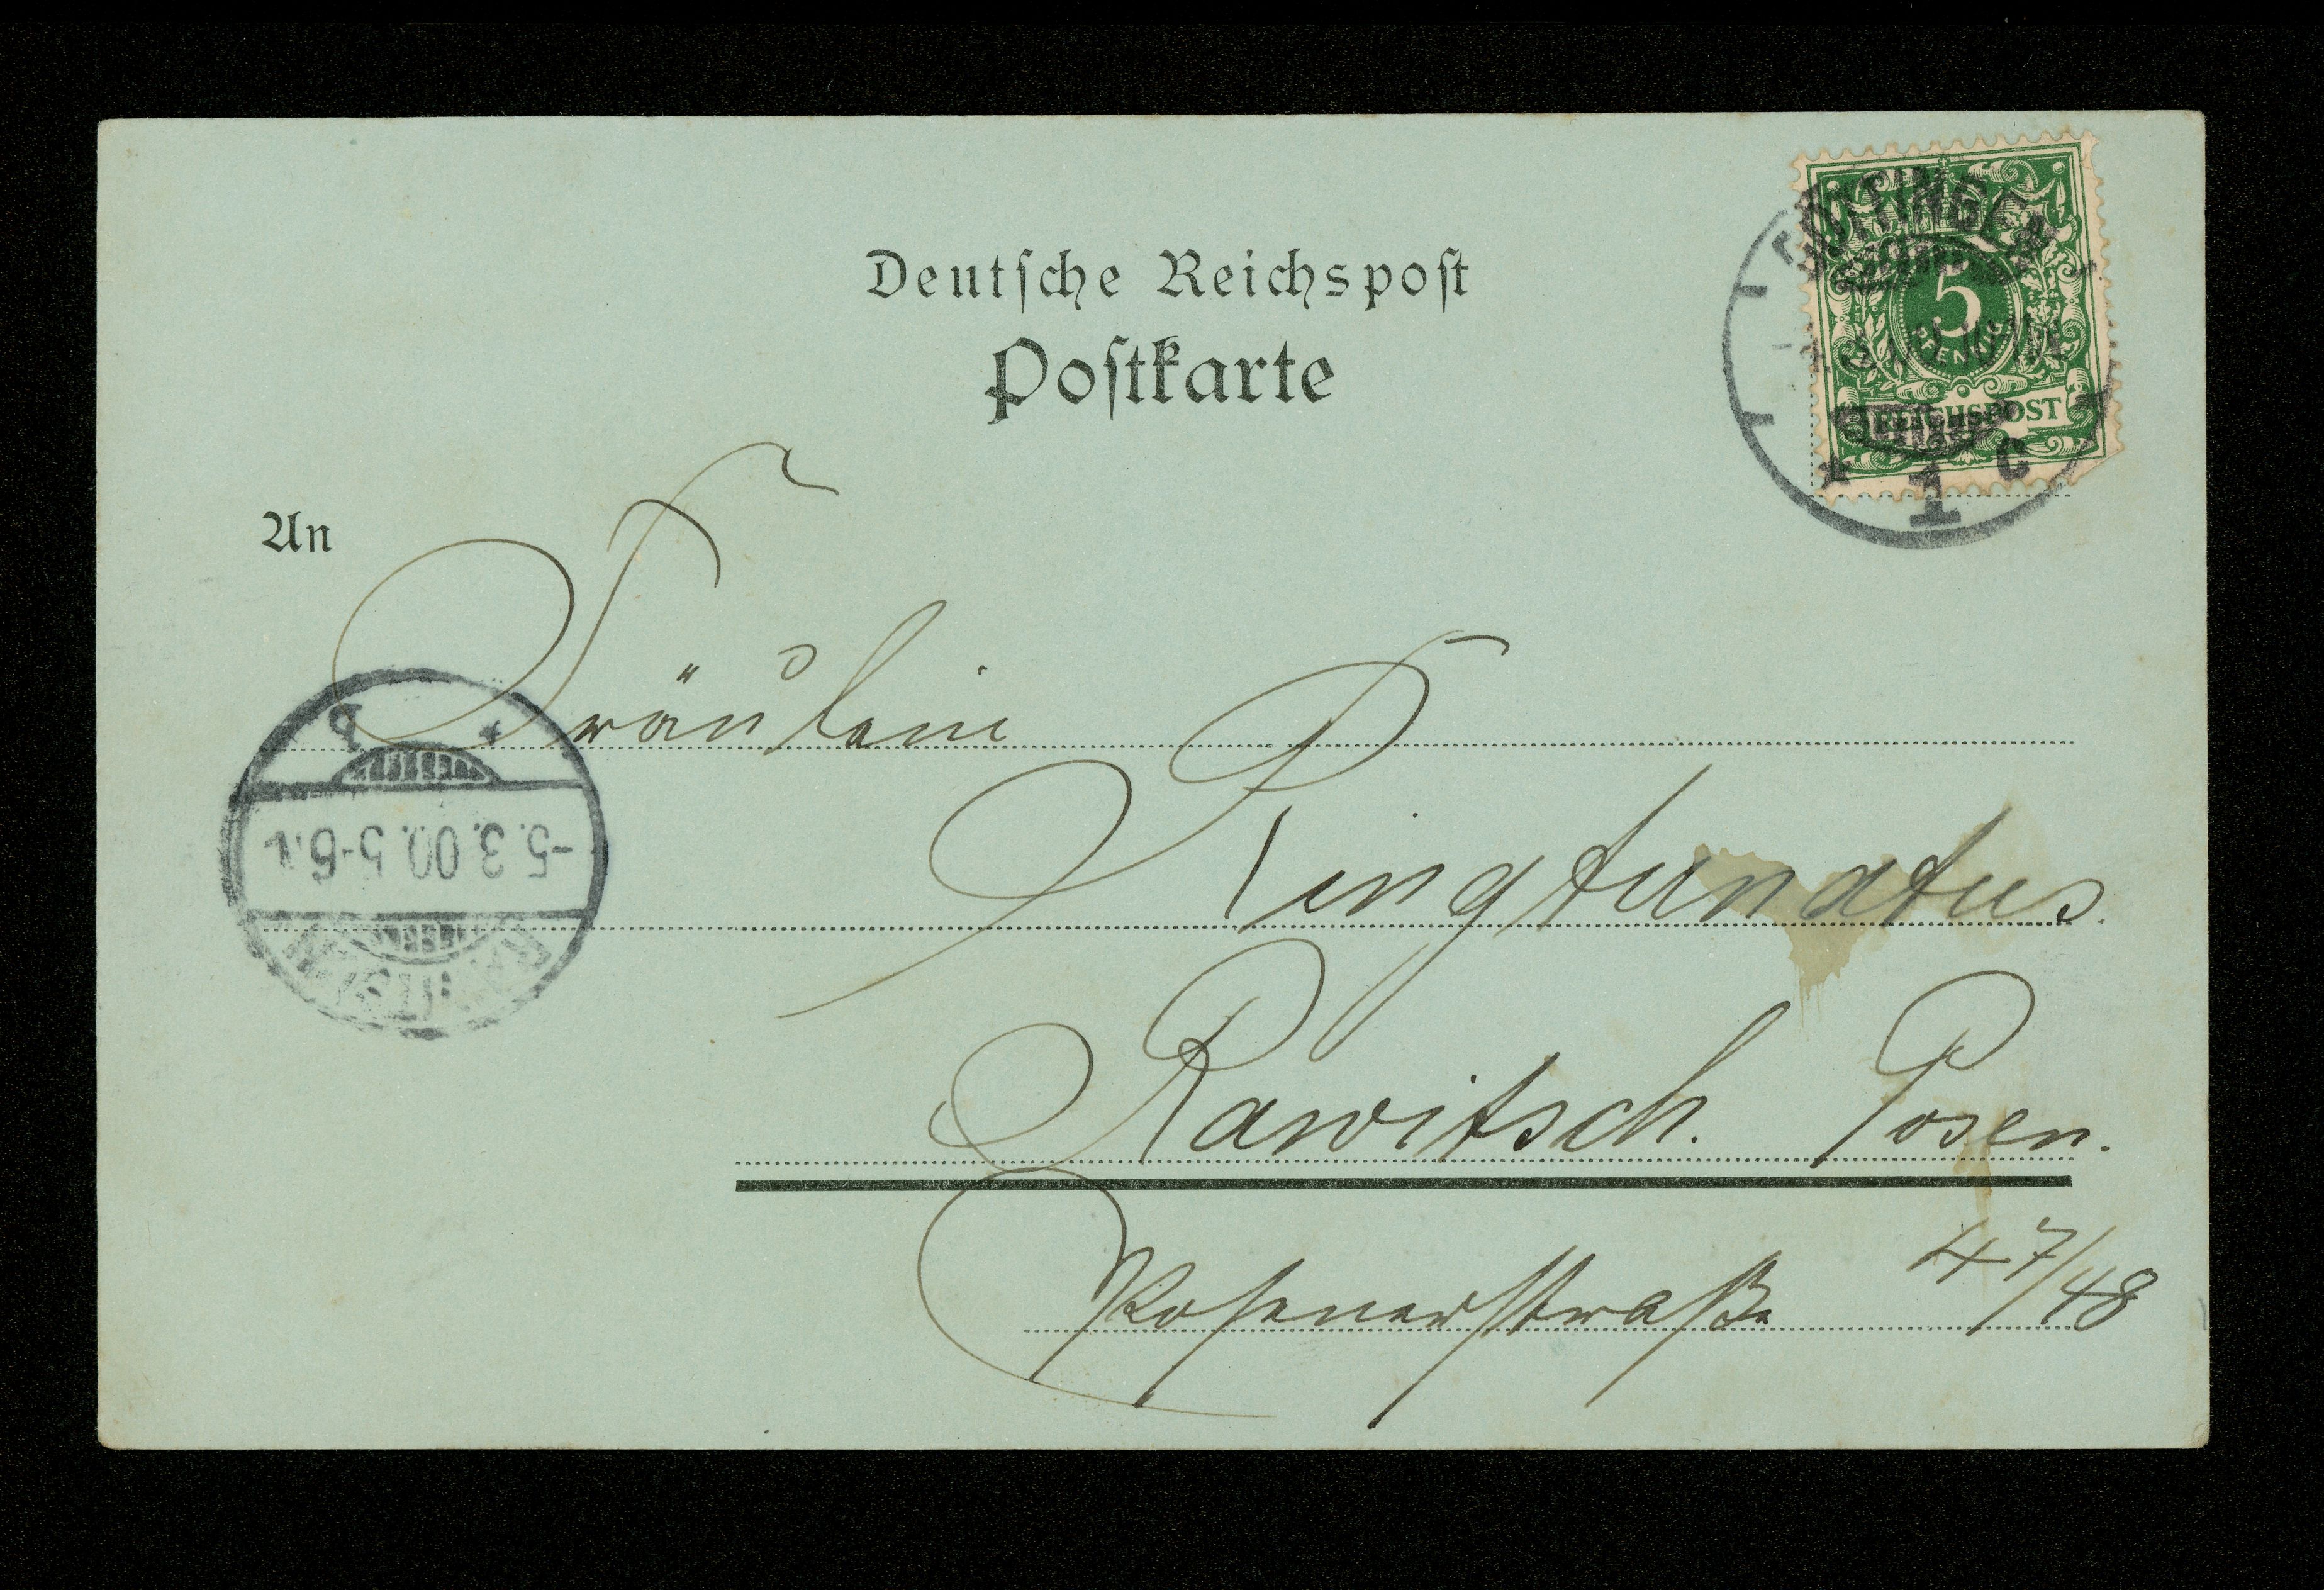 Deutsche Reichspost
Postkarte
GÖTTINGEN
5
PFENNIG
REICHSPOST
1 c
An
Fräulein
-5.3.00.5-6.
Rawitsch. Posen.
Posenerstraße 47/48